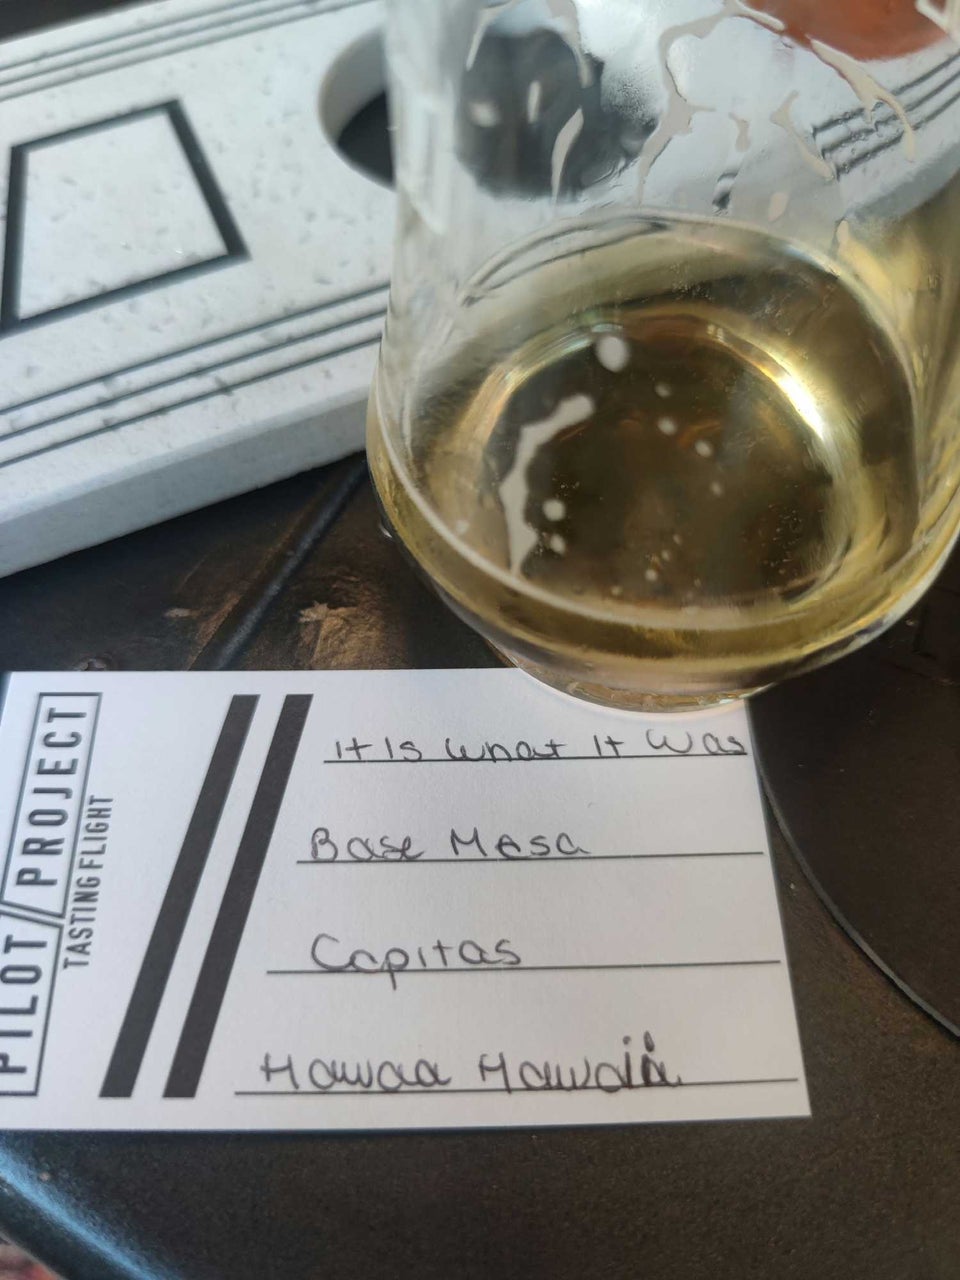 PILOT//PROJECT
TASTING FLIGHT
It Is What It Was
Base Mesa
Capitas
Hawaa Hawaii